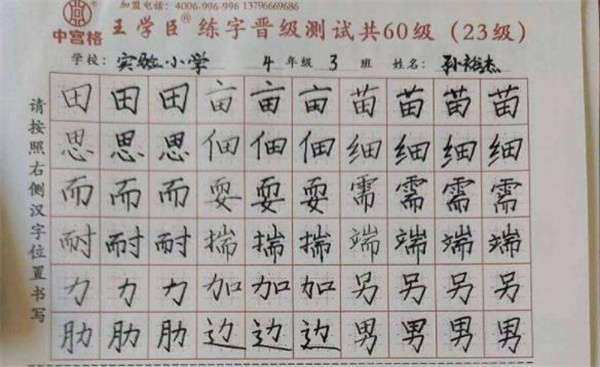 加盟电话：4006-996-996 13796669686
中宫格 王学臣® 练字晋级测试共60级（23级）
学校：实验小学 4年级 3班 姓名：孙裕杰
请按照右侧汉字位置书写
田田田亩亩亩苗苗苗苗
思思思佃佃佃细细细细
而而而耍耍耍需需需需
耐耐耐揣揣揣端端端端
力力力加加加另另另另
肋肋肋边边边男男男男